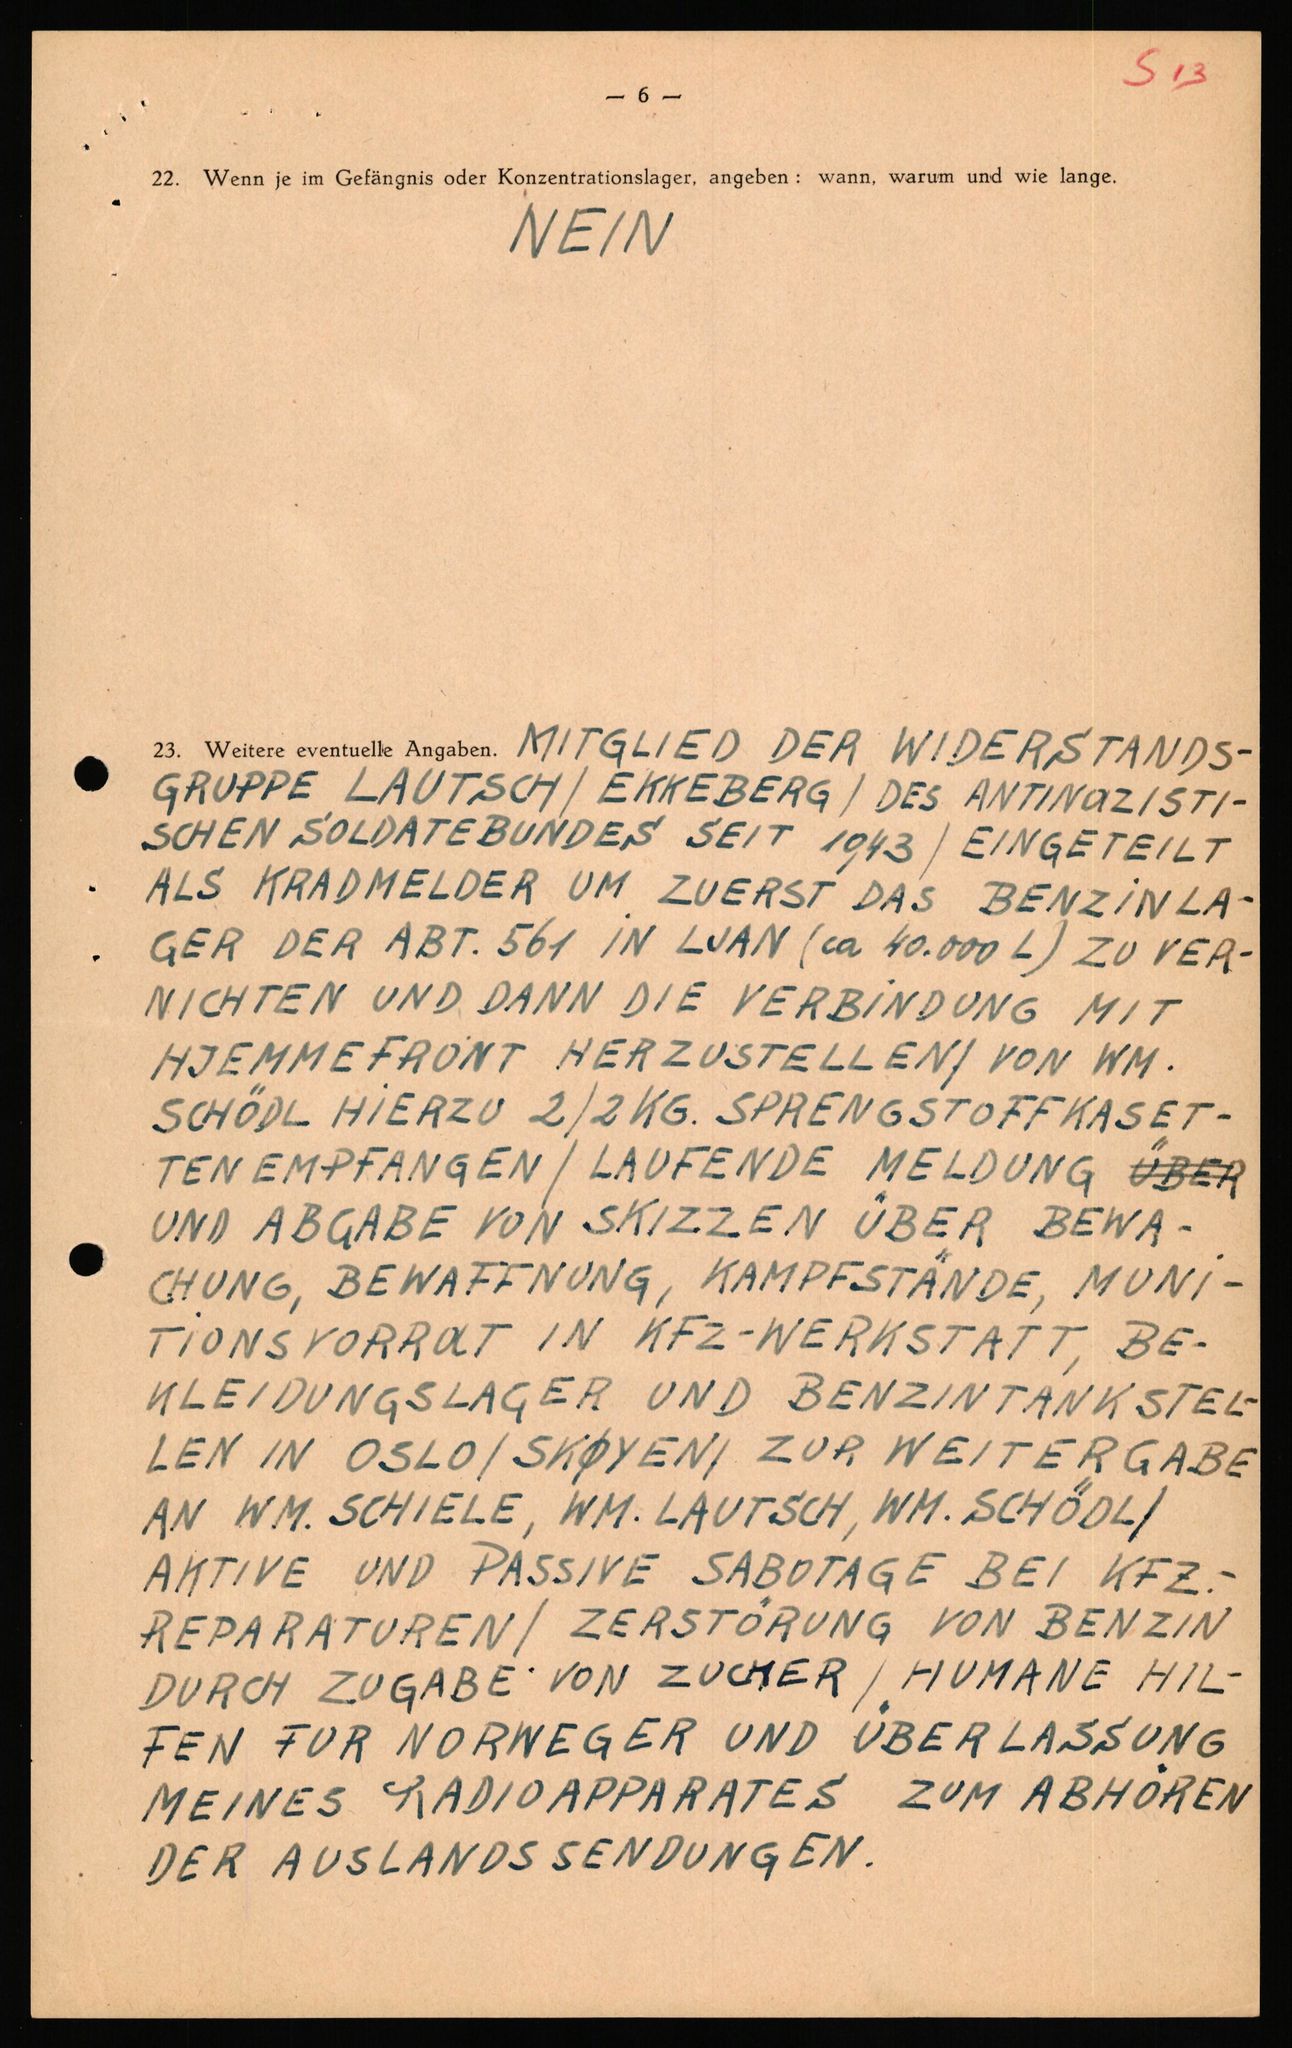 S 13
— 6 —
22. Wenn je im Gefängnis oder Konzentrationslager, angeben: wann, warum und wie lange.
NEIN
23. Weitere eventuelle Angaben. MITGLIED DER WIDERSTANDS-
GRUPPE LAUTSCH / EKKEBERG / DES ANTINAZISTI-
SCHEN SOLDATEBUNDES SEIT 1943 / EINGETEILT
ALS KRADMELDER UM ZUERST DAS BENZINLA-
GER DER ABT. 561 IN LJAN (ca 40.000 L) ZU VER-
NICHTEN UND DANN DIE VERBINDUNG MIT
HJEMMEFRONT HERZUSTELLEN / VON WM.
SCHÖDL HIERZU 2/2KG. SPRENGSTOFFKASET-
TEN EMPFANGEN / LAUFENDE MELDUNG ÜBER
UND ABGABE VON SKIZZEN ÜBER BEWA-
CHUNG, BEWAFFNUNG, KAMPFSTÄNDE, MUNI-
TIONSVORRAT IN KFZ-WERKSTATT, BE-
KLEIDUNGSLAGER UND BENZINTANKSTEL-
LEN IN OSLO / SKØYEN / ZUR WEITERGABE
AN WM. SCHIELE, WM. LAUTSCH, WM. SCHÖDL /
AKTIVE UND PASSIVE SABOTAGE BEI KFZ.-
REPARATUREN / ZERSTÖRUNG VON BENZIN
DURCH ZUGABE VON ZUCKER / HUMANE HIL-
FEN FUR NORWEGER UND ÜBERLASSUNG
MEINES RADIOAPPARATES ZUM ABHÖREN
DER AUSLANDSSENDUNGEN.